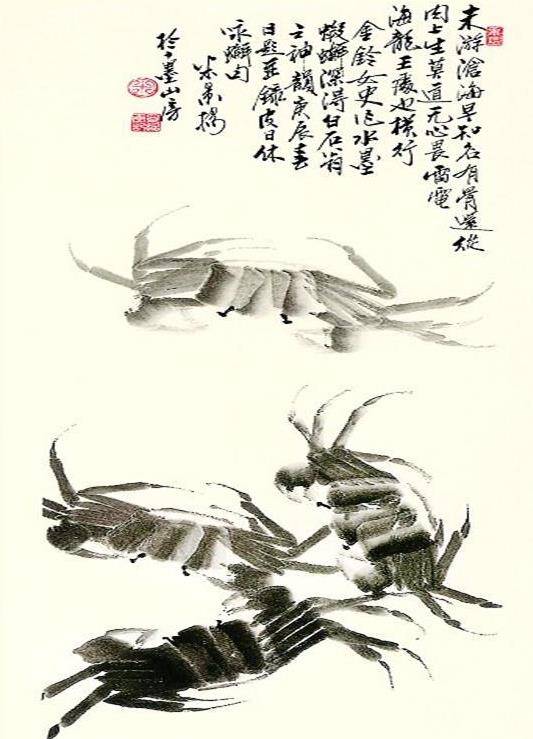 未游滄海早知名有骨還從
肉上生莫道无心畏雷電
海龍王處也橫行
金鈴女史作水墨
蝦蠏深得白石翁
之神韻庚辰春
日題並錄皮日休
詠蠏句
米景揚
於墨山房